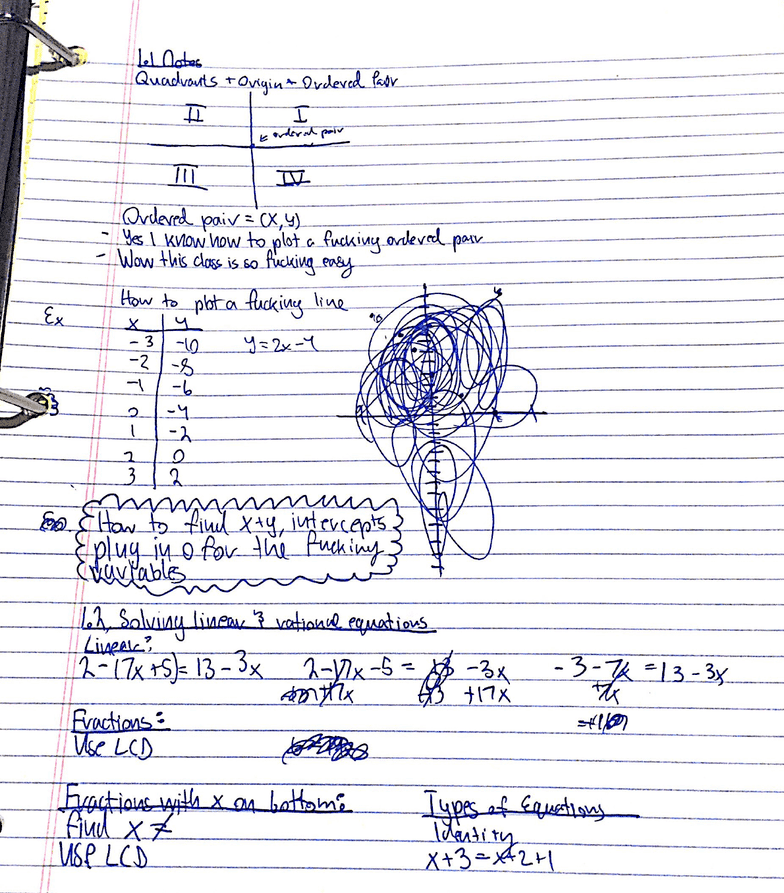 1.1 Notes
Quadrants + Origin + Ordered Pair
II I
← ordered pair
III IV
Ordered pair = (x, y)
- Yes I know how to plot a fucking ordered pair
- Wow this class is so fucking easy
How to plot a fucking line
Ex
x y
-3 -10 y=2x-4
-2 -8
-1 -6
0 -4
1 -2
2 0
3 2
How to find x+y, intercepts
plug in 0 for the fucking
variables
1.2, Solving linear & rational equations
Linear:
2-(7x+5)=13-3x 2-17x-5= -3x -3-7x =13-3x
+17x +17x +7x
Fractions:
Use LCD
Fractions with x on bottom: Types of Equations
find x ≠ Identity
Use LCD x+3=x+2+1